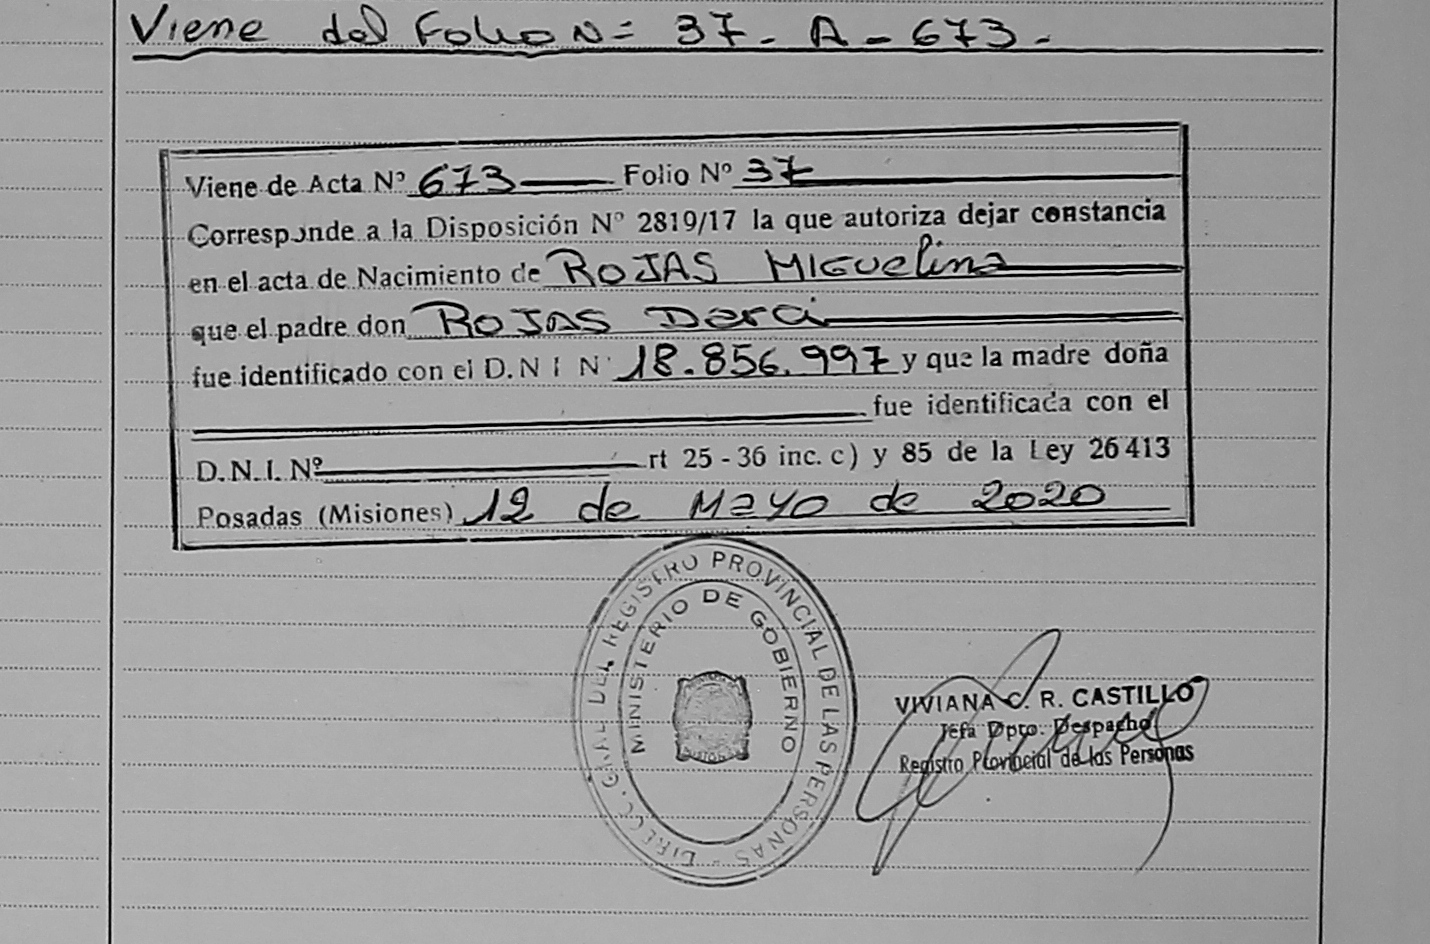 Viene del Folio N= 37 - A - 673 -
Viene de Acta Nº 673 Folio Nº 37
Corresponde a la Disposición Nº 2819/17 la que autoriza dejar constancia
en el acta de Nacimiento de ROJAS MIGUElina
que el padre don ROJAS Darci
fue identificado con el D.N I N° 18.856.997 y que la madre doña
fue identificada con el
D.N.I. Nº rt 25 - 36 inc. c) y 85 de la Ley 26413
Posadas (Misiones) 12 de Mayo de 2020
DIRECC. GRAL DEL REGISTRO PROVINCIAL DE LAS PERSONAS -
MINISTERIO DE GOBIERNO
VIVIANA C. R. CASTILLO
Jefa Dpto. Despacho
Registro Provincial de las Personas